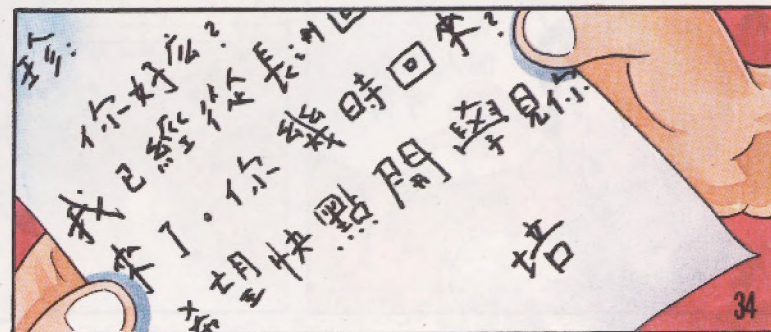 珍:
你好么?
我已經從長洲回
來了.你幾時回來?
希望快點開學見你.
培
34